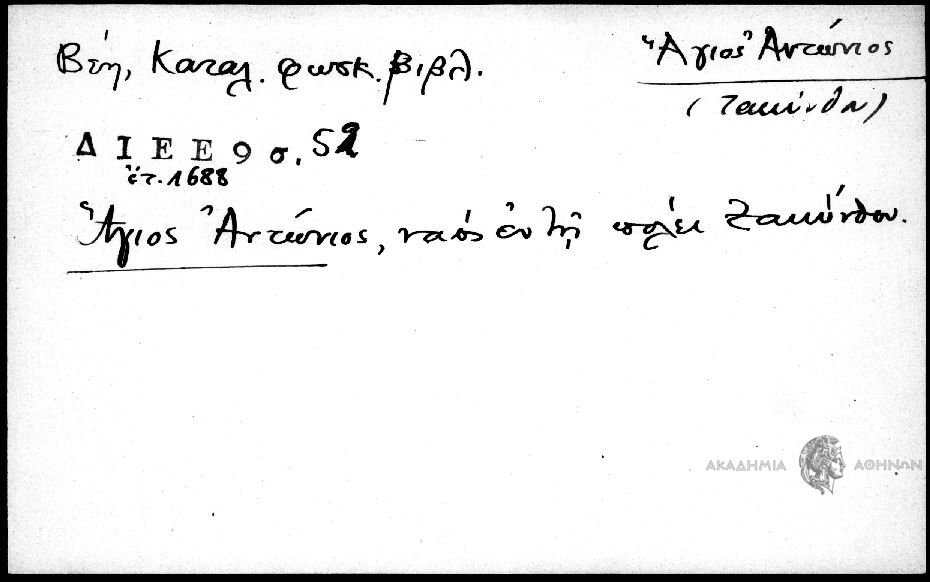 Βέη, Καταλ. φωσκ. βιβλ.
Ἅγιος Ἀντώνιος
(Ζακύνθου)
ΔΙΕΕ 9 σ. 52
ἔτ. 1688
Ἅγιος Ἀντώνιος, ναὸς ἐν τῇ πόλει Ζακύνθου.
ΑΚΑΔΗΜΙΑ ΑΘΗΝΩΝ